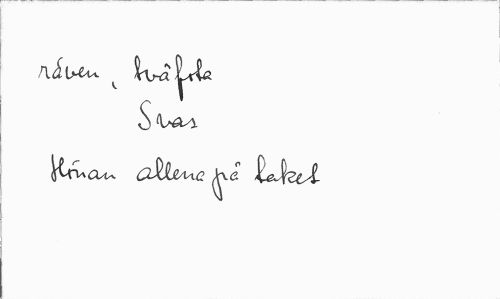 räven, tvåfota
Svar
Hönan allena på taket